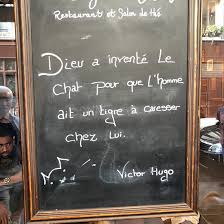 Restaurant et Salon de thé
Dieu a inventé Le
Chat pour que L'homme
ait un tigre à caresser
chez Lui.
Victor Hugo